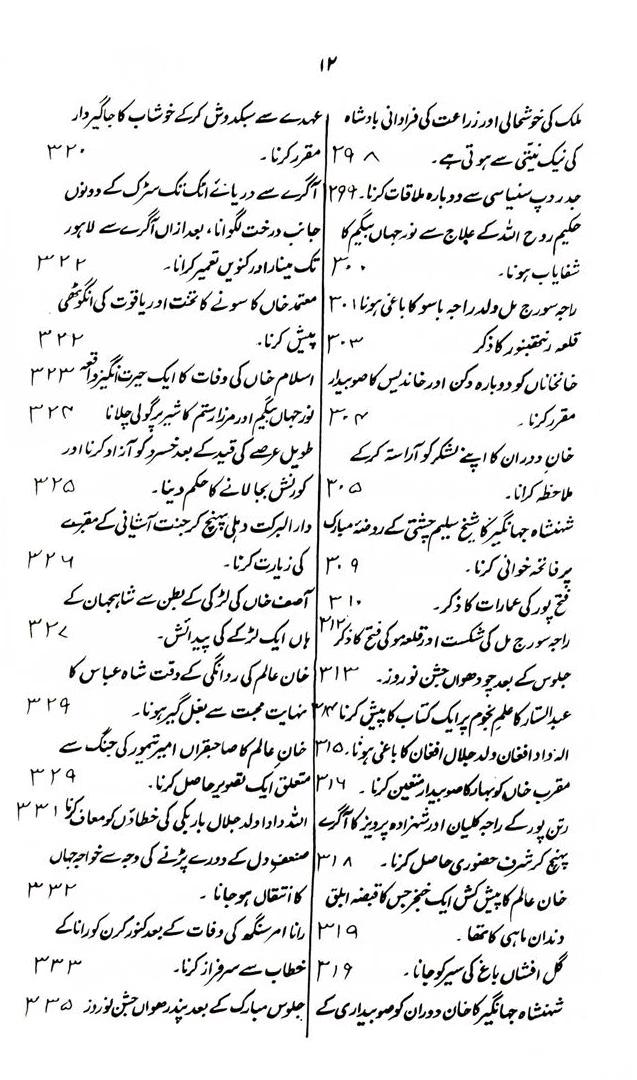 ۱۲
ملک کی خوشحالی اور زراعت کی فراوانی بادشاہ
کی نیک نیتی سے ہوتی ہے۔ ۲۹۸
جدروپ سنیاسی سے دوبارہ ملاقات کرنا۔ ۲۹۹
حکیم روح اللہ کے علاج سے نورجہاں بیگم کا
شفایاب ہونا۔ ۳۰۰
راجہ سورج مل ولد راجہ باسو کا باغی ہونا ۳۰۱
قلعہ رنتھنبور کا ذکر ۳۰۳
خانخاناں کو دوبارہ دکن اور خاندیس کا صوبیدار
مقرر کرنا۔ ۳۰۴
خانِ دوران کا اپنے لشکر کو آراستہ کر کے
ملاحظہ کرانا۔ ۳۰۵
شہنشاہ جہانگیر کا شیخ سلیم چشتی کے روضۂ مبارک
پر فاتحہ خوانی کرنا۔ ۳۰۹
فتح پور کی عمارات کا ذکر۔ ۳۱۰
راجہ سورج مل کی شکست اور قلعہ مو کی فتح کا ذکر ۳۱۲
جلوس کے بعد چودھواں جشن نوروز۔ ۳۱۳
عبدالستار کا علمِ نجوم پر ایک کتاب کا پیش کرنا ۳۱۴
الہ داد افغان ولد جلال افغان کا باغی ہونا۔ ۳۱۵
مقرب خاں کو بہار کا صوبیدار متعین کرنا۔ ۳۱۶
رتن پور کے راجہ کلیان اور شہزادہ پرویز کا آگرے
پہنچ کر شرف حضوری حاصل کرنا۔ ۳۱۸
خان عالم کا پیش کش ایک خنجر جس کا قبضہ ابلق
دندان ماہی کا تھا۔ ۳۱۹
گل افشاں باغ کی سیر کو جانا۔ ۳۱۹
شہنشاہ جہانگیر کا خان دوران کو صوبیداری کے
عہدے سے سبکدوش کر کے خوشاب کا جاگیردار
مقرر کرنا۔ ۳۲۰
آگرے سے دریائے اٹک تک سڑک کے دونوں
جانب درخت لگوانا، بعد ازاں آگرے سے لاہور
تک مینار اور کنویں تعمیر کرانا۔ ۳۲۲
معتمد خاں کا سونے کا تخت اور یاقوت کی انگوٹھی
پیش کرنا۔ ۳۲۲
اسلام خاں کی وفات کا ایک حیرت انگیز واقعہ ۳۲۳
نورجہاں بیگم اور مرزا رستم کا شیر پر گولی چلانا ۳۲۴
طویل عرصے کی قید کے بعد خسرو کو آزاد کرنا اور
کورنش بجا لانے کا حکم دینا۔ ۳۲۵
دار البرکت دہلی پہنچ کر جنت آشیانی کے مقبرے
کی زیارت کرنا۔ ۳۲۶
آصف خاں کی لڑکی کے بطن سے شاہجہان کے
ہاں ایک لڑکے کی پیدائش۔ ۳۲۷
خان عالم کی روانگی کے وقت شاہ عباس کا
نہایت محبت سے بغل گیر ہونا۔ ۳۲۹
خانِ عالم کا صاحبقراں امیر تیمور کی جنگ سے
متعلق ایک تصویر حاصل کرنا۔ ۳۲۹
اللہ داد اولد جلال باریکی کی خطاؤں کو معاف کرنا ۳۳۱
ضعفِ دل کے دورے پڑنے کی وجہ سے خواجہ جہاں
کا انتقال ہو جانا۔ ۳۳۲
رانا امر سنگھ کی وفات کے بعد کنور کرن کو رانا کے
خطاب سے سرفراز کرنا۔ ۳۳۳
جلوس مبارک کے بعد پندرھواں جشن نوروز ۳۳۵